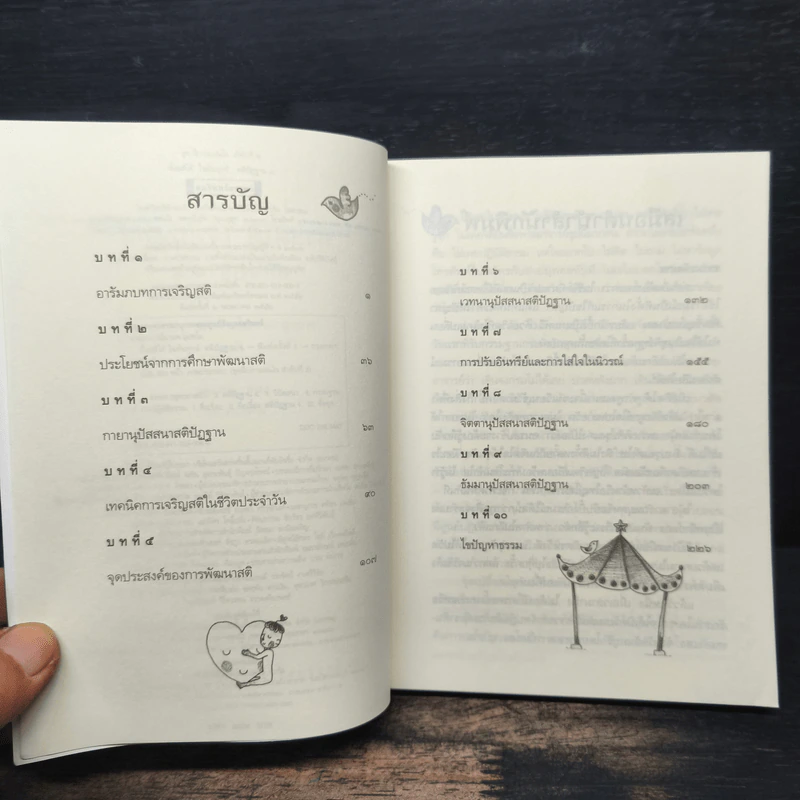 สารบัญ
บ ท ที่ ๑
อารัมภบทการเจริญสติ ๑
บ ท ที่ ๒
ประโยชน์จากการศึกษาพัฒนาสติ ๓๖
บ ท ที่ ๓
กายานุปัสสนาสติปัฏฐาน ๖๓
บ ท ที่ ๔
เทคนิคการเจริญสติในชีวิตประจำวัน ๙๐
บ ท ที่ ๕
จุดประสงค์ของการพัฒนาสติ ๑๐๗
บ ท ที่ ๖
เวทนานุปัสสนาสติปัฏฐาน ๑๓๒
บ ท ที่ ๗
การปรับอินทรีย์และการใส่ใจในนิวรณ์ ๑๕๕
บ ท ที่ ๘
จิตตานุปัสสนาสติปัฏฐาน ๑๘๐
บ ท ที่ ๙
ธัมมานุปัสสนาสติปัฏฐาน ๒๐๓
บ ท ที่ ๑๐
ไขปัญหาธรรม ๒๒๖